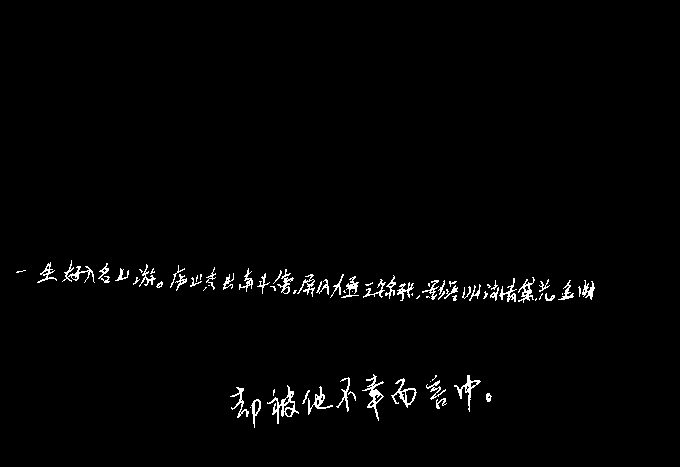 一生好入名山游。庐山秀出南斗傍,屏风九叠云锦张,影落明湖青黛光。金阙
却被他不幸而言中。